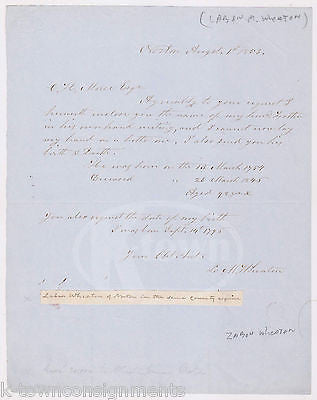 (LABAN M. WHEATON)
Augt. 1st
Esqr
Agreeably to your request I
herewith inclose you the name of my
in his own hand writing, and I cannot now lay
my hand on a better one, I also send you his
birth & Death.
He was born on the 13 March 1754
Deceased " 23 March 1846
Aged 92 yrs
You also request the date of my birth
I was born Septr. 14th 1795
Your Obt Svt.
L. M. Wheaton
Laban Wheaton of Norton in the same county esquire
LABAN WHEATON
k-townconsignments